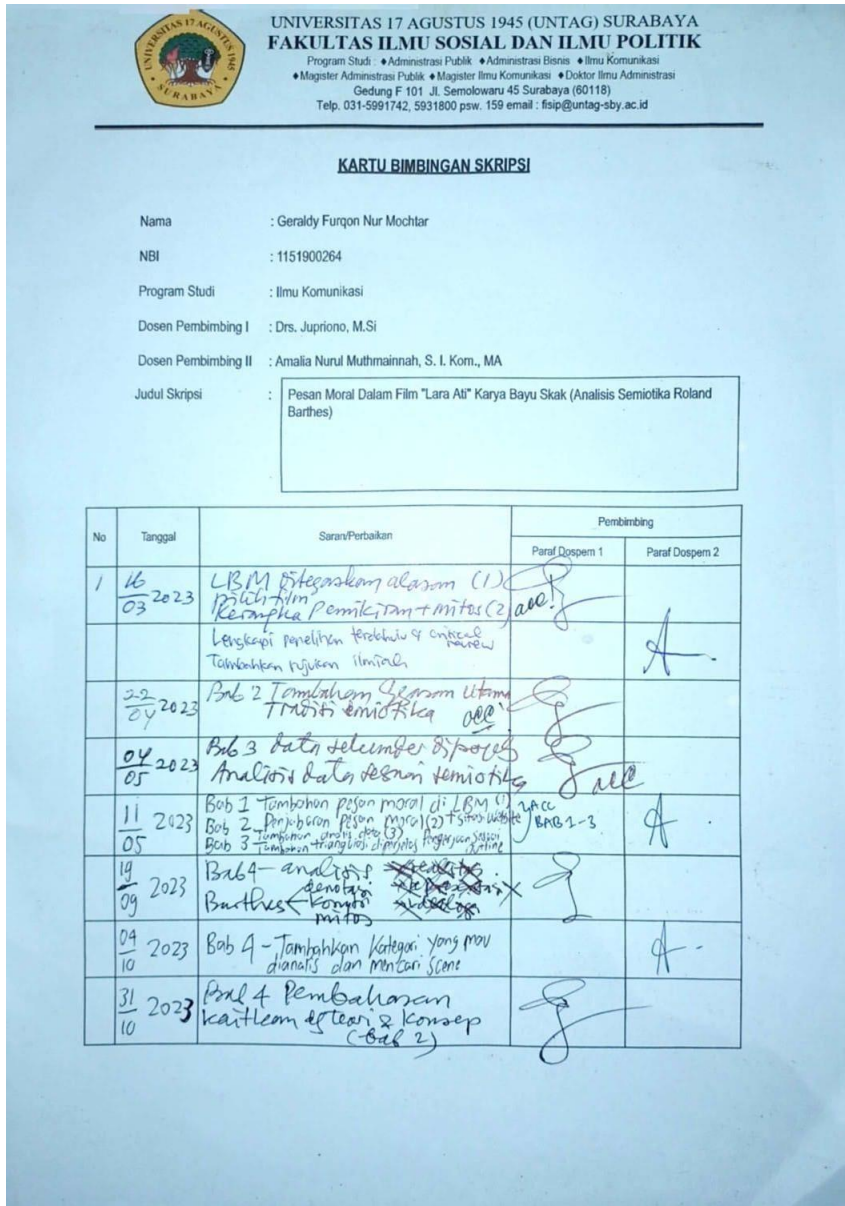 UNIVERSITAS 17 AGUSTUS 1945
SURABAYA
UNIVERSITAS 17 AGUSTUS 1945 (UNTAG) SURABAYA
FAKULTAS ILMU SOSIAL DAN ILMU POLITIK
Program Studi : ♦Administrasi Publik ♦Administrasi Bisnis ♦Ilmu Komunikasi
♦Magister Administrasi Publik ♦Magister Ilmu Komunikasi ♦Doktor Ilmu Administrasi
Gedung F 101 Jl. Semolowaru 45 Surabaya (60118)
Telp. 031-5991742, 5931800 psw. 159 email : fisip@untag-sby.ac.id
KARTU BIMBINGAN SKRIPSI
Nama : Geraldy Furqon Nur Mochtar
NBI : 1151900264
Program Studi : Ilmu Komunikasi
Dosen Pembimbing I : Drs. Jupriono, M.Si
Dosen Pembimbing II : Amalia Nurul Muthmainnah, S. I. Kom., MA
Judul Skripsi : Pesan Moral Dalam Film "Lara Ati" Karya Bayu Skak (Analisis Semiotika Roland
Barthes)
No Tanggal Saran/Perbaikan Pembimbing
Paraf Dospem 1 Paraf Dospem 2
1 16/03 2023 LBM Ditegaskan alasan (1)
pilih film
Kerangka Pemikiran + mitos (2) acc!
Lengkapi penelitian terdahulu & critical review
Tambahkan rujukan ilmiah
22/04 2023 Bab 2 Tambahan utama
Tradisi semiotika acc
04/05 2023 Bab 3 data sekunder
Analisis data sesuai semiotika acc
11/05 2023 Bab 1 Tambahan pesan moral di LBM (1)
Bab 2 Penjabaran Pesan moral (2) + situs website
Bab 3 Tambahan analisis data (3)
Tambahan triangulasi diperjelas Pengerjaan sesuai outline
ACC BAB 1-3
19/09 2023 Bab 4 - analisis
Barthes denotasi
konotasi
mitos
04/10 2023 Bab 4 - Tambahkan Kategori yang mau
dianalis dan mencari scene
31/10 2023 Bab 4 Pembahasan
kaitkan dg teori & konsep
(bab 2)